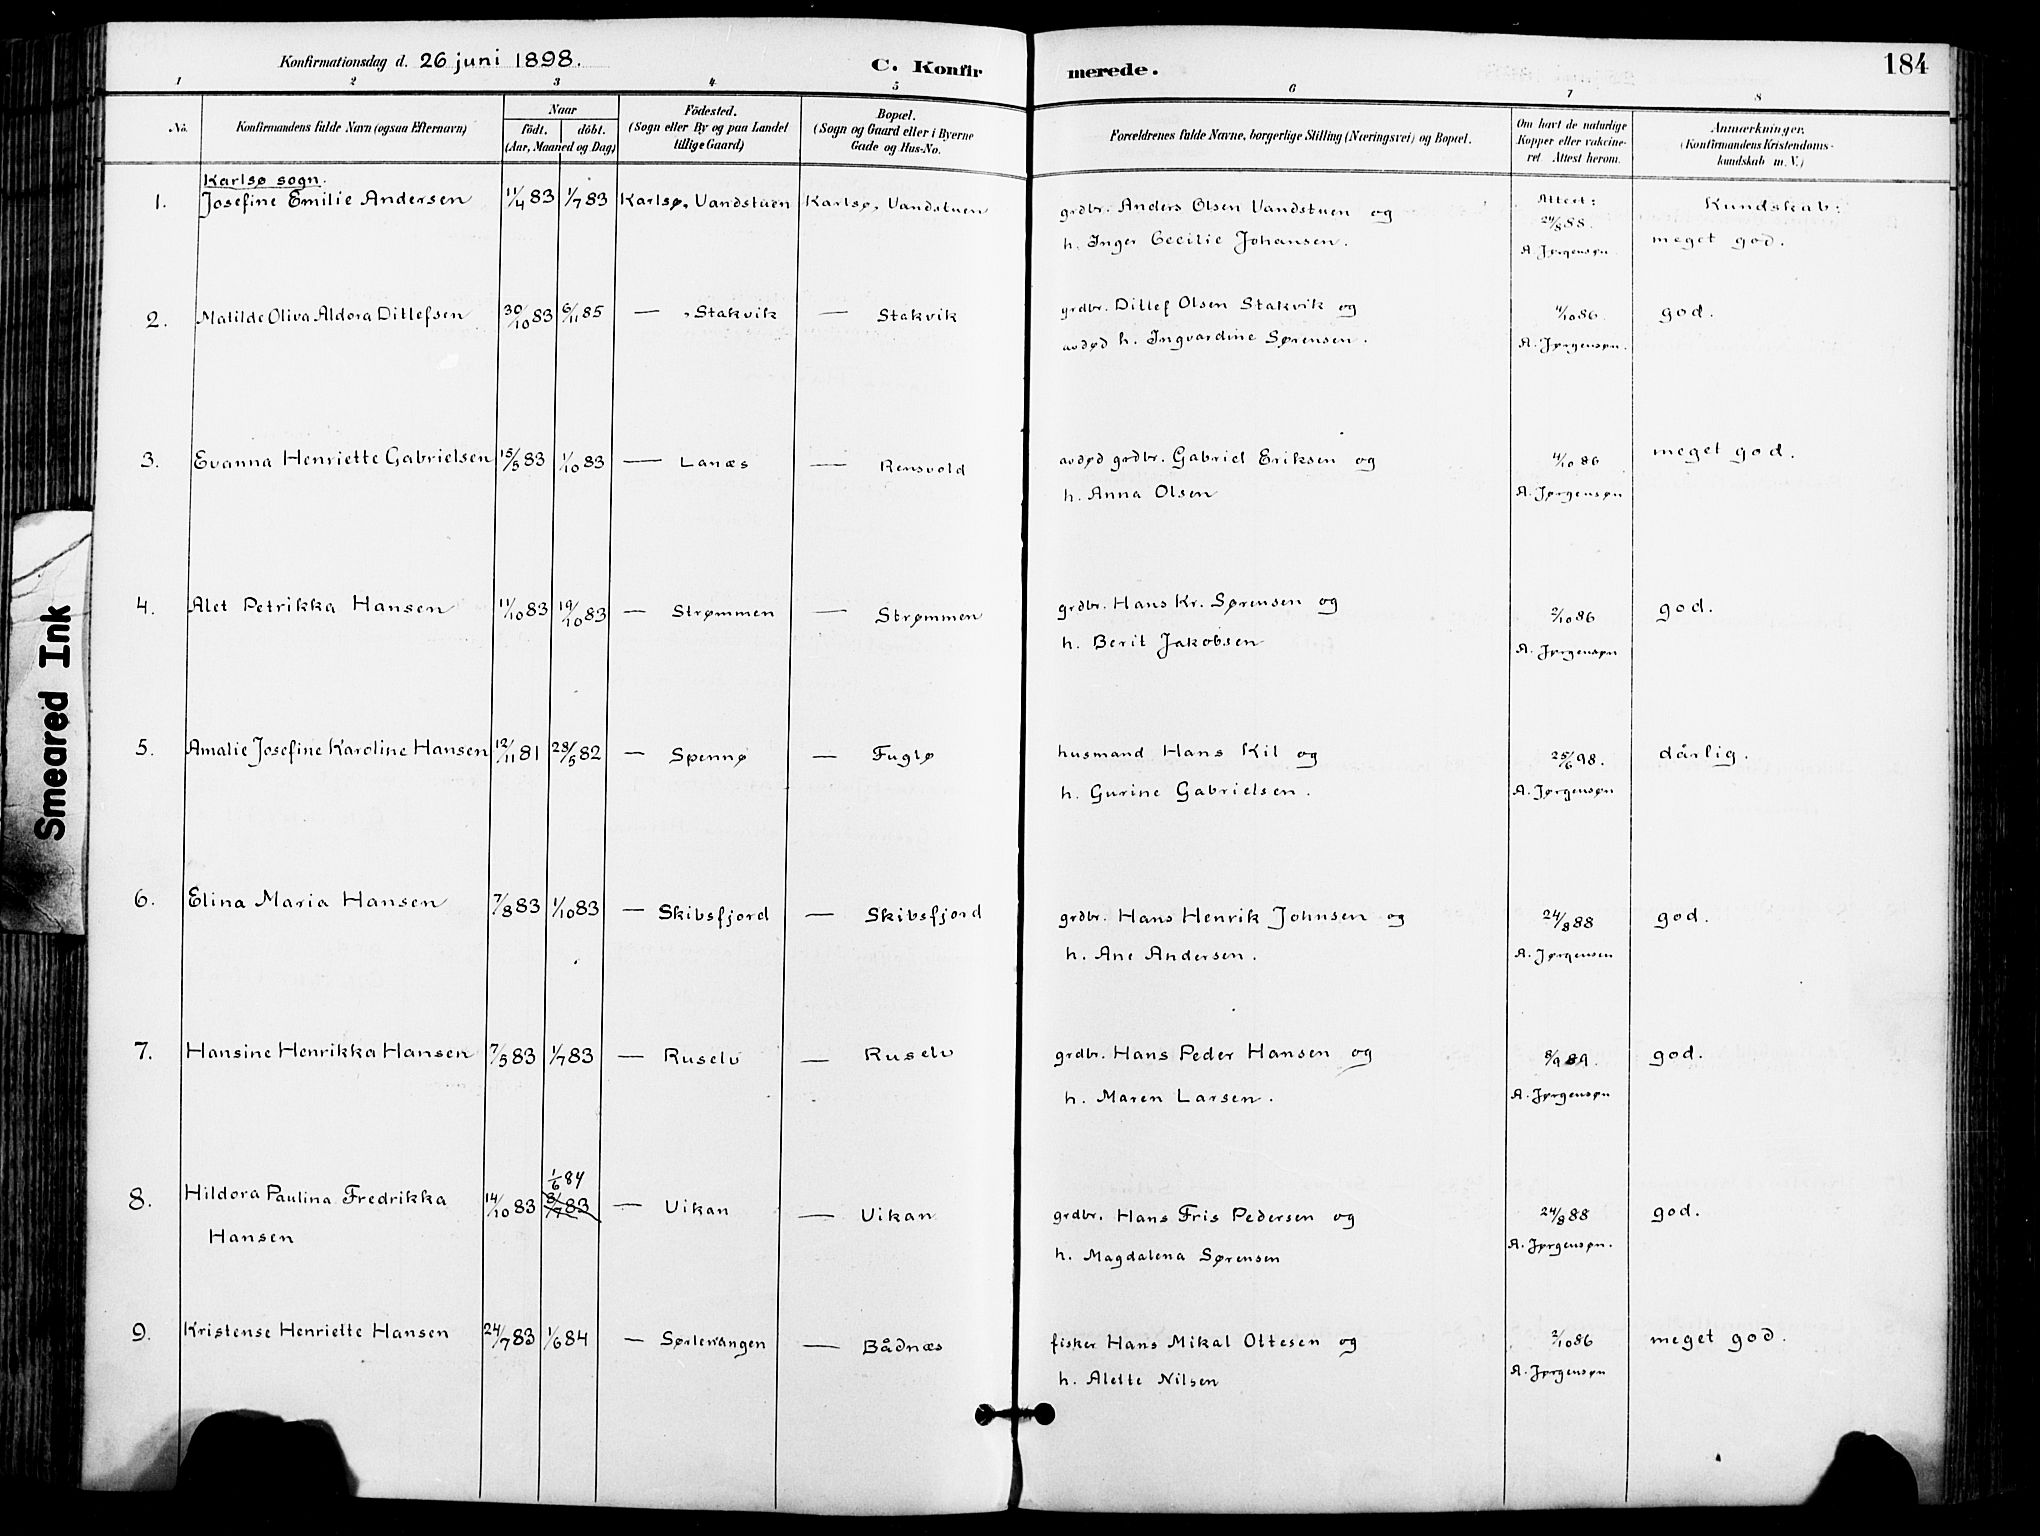 Konfirmationsdag d. 26 juni 1898.
C. Konfir
merede.
184
1 2 3 4 5 6 7 8
No.
Konfirmandens fulde Navn (ogsaa Efternavn)
Naar
födt. döbt.
(Aar, Maaned og Dag)
Födested.
(Sogn eller By og paa Landet
tillige Gaard)
Bopæl.
(Sogn og Gaard eller i Byerne
Gade og Hus-No.
Forældrenes fulde Navne, borgerlige Stilling (Næringsvei) og Bopæl.
Om havt de naturlige
Kopper eller vakcine-
ret Attest herom.
Anmærkninger.
(Konfirmandens Kristendoms-
kundskab m. V.)
Karlsø sogn.
1. Josefine Emilie Andersen 11/4 83 1/7 83 Karlsø, Vandstuen Karlsø, Vandstuen grdbr. Anders Olsen Vandstuen og Attest: Kundskab:
h. Inger Cecilie Johansen. 24/8 88. meget god.
A. Jørgensøn
2. Matilde Oliva Aldora Ditlefsen 30/10 83 6/11 85 — , Stakvik — Stakvik grdbr. Ditlef Olsen Stakvik og 4/10 86. god.
avdød h. Ingvardine Sørensen. A. Jørgensøn.
3. Evanna Henriette Gabrielsen 15/5 83 1/10 83 — Lanæs — Rensvold avdød grdbr. Gabriel Eriksen og 4/10 86 meget god.
h. Anna Olsen A. Jørgensøn
4. Alet Petrikka Hansen 11/10 83 19/10 83 — Strømmen — Strømmen grdbr. Hans Kr. Sørensen og 2/10 86 god.
h. Berit Jakobsen A. Jørgensøn
5. Amalie Josefine Karoline Hansen 12/11 81 28/5 82 — Spennø — Fuglø husmand Hans Kil og 25/6 98. dårlig.
h. Gurine Gabrielsen. A. Jørgensøn
6. Elina Maria Hansen 7/8 83 1/10 83 — Skibsfjord — Skibsfjord grdbr. Hans Henrik Johnsen og 24/8 88 god.
h. Ane Andersen. A. Jørgensen
7. Hansine Henrikka Hansen 7/5 83 1/7 83 — Ruselv — Ruselv grdbr. Hans Peder Hansen og 8/9 89. god.
h. Maren Larsen. A. Jørgensøn
1/6 84
8. Hildora Paulina Fredrikka 14/10 83 8/7 83 — Vikan — Vikan grdbr. Hans Fris Pedersen og 24/8 88 god.
Hansen h. Magdalena Sørensen A. Jørgensøn.
9. Kristense Henriette Hansen 24/7 83 1/6 84 — Sørlenangen — Bådnæs fisker Hans Mikal Ottesen og 2/10 86 meget god.
h. Alette Nilsen A. Jørgensøn
Smeared Ink